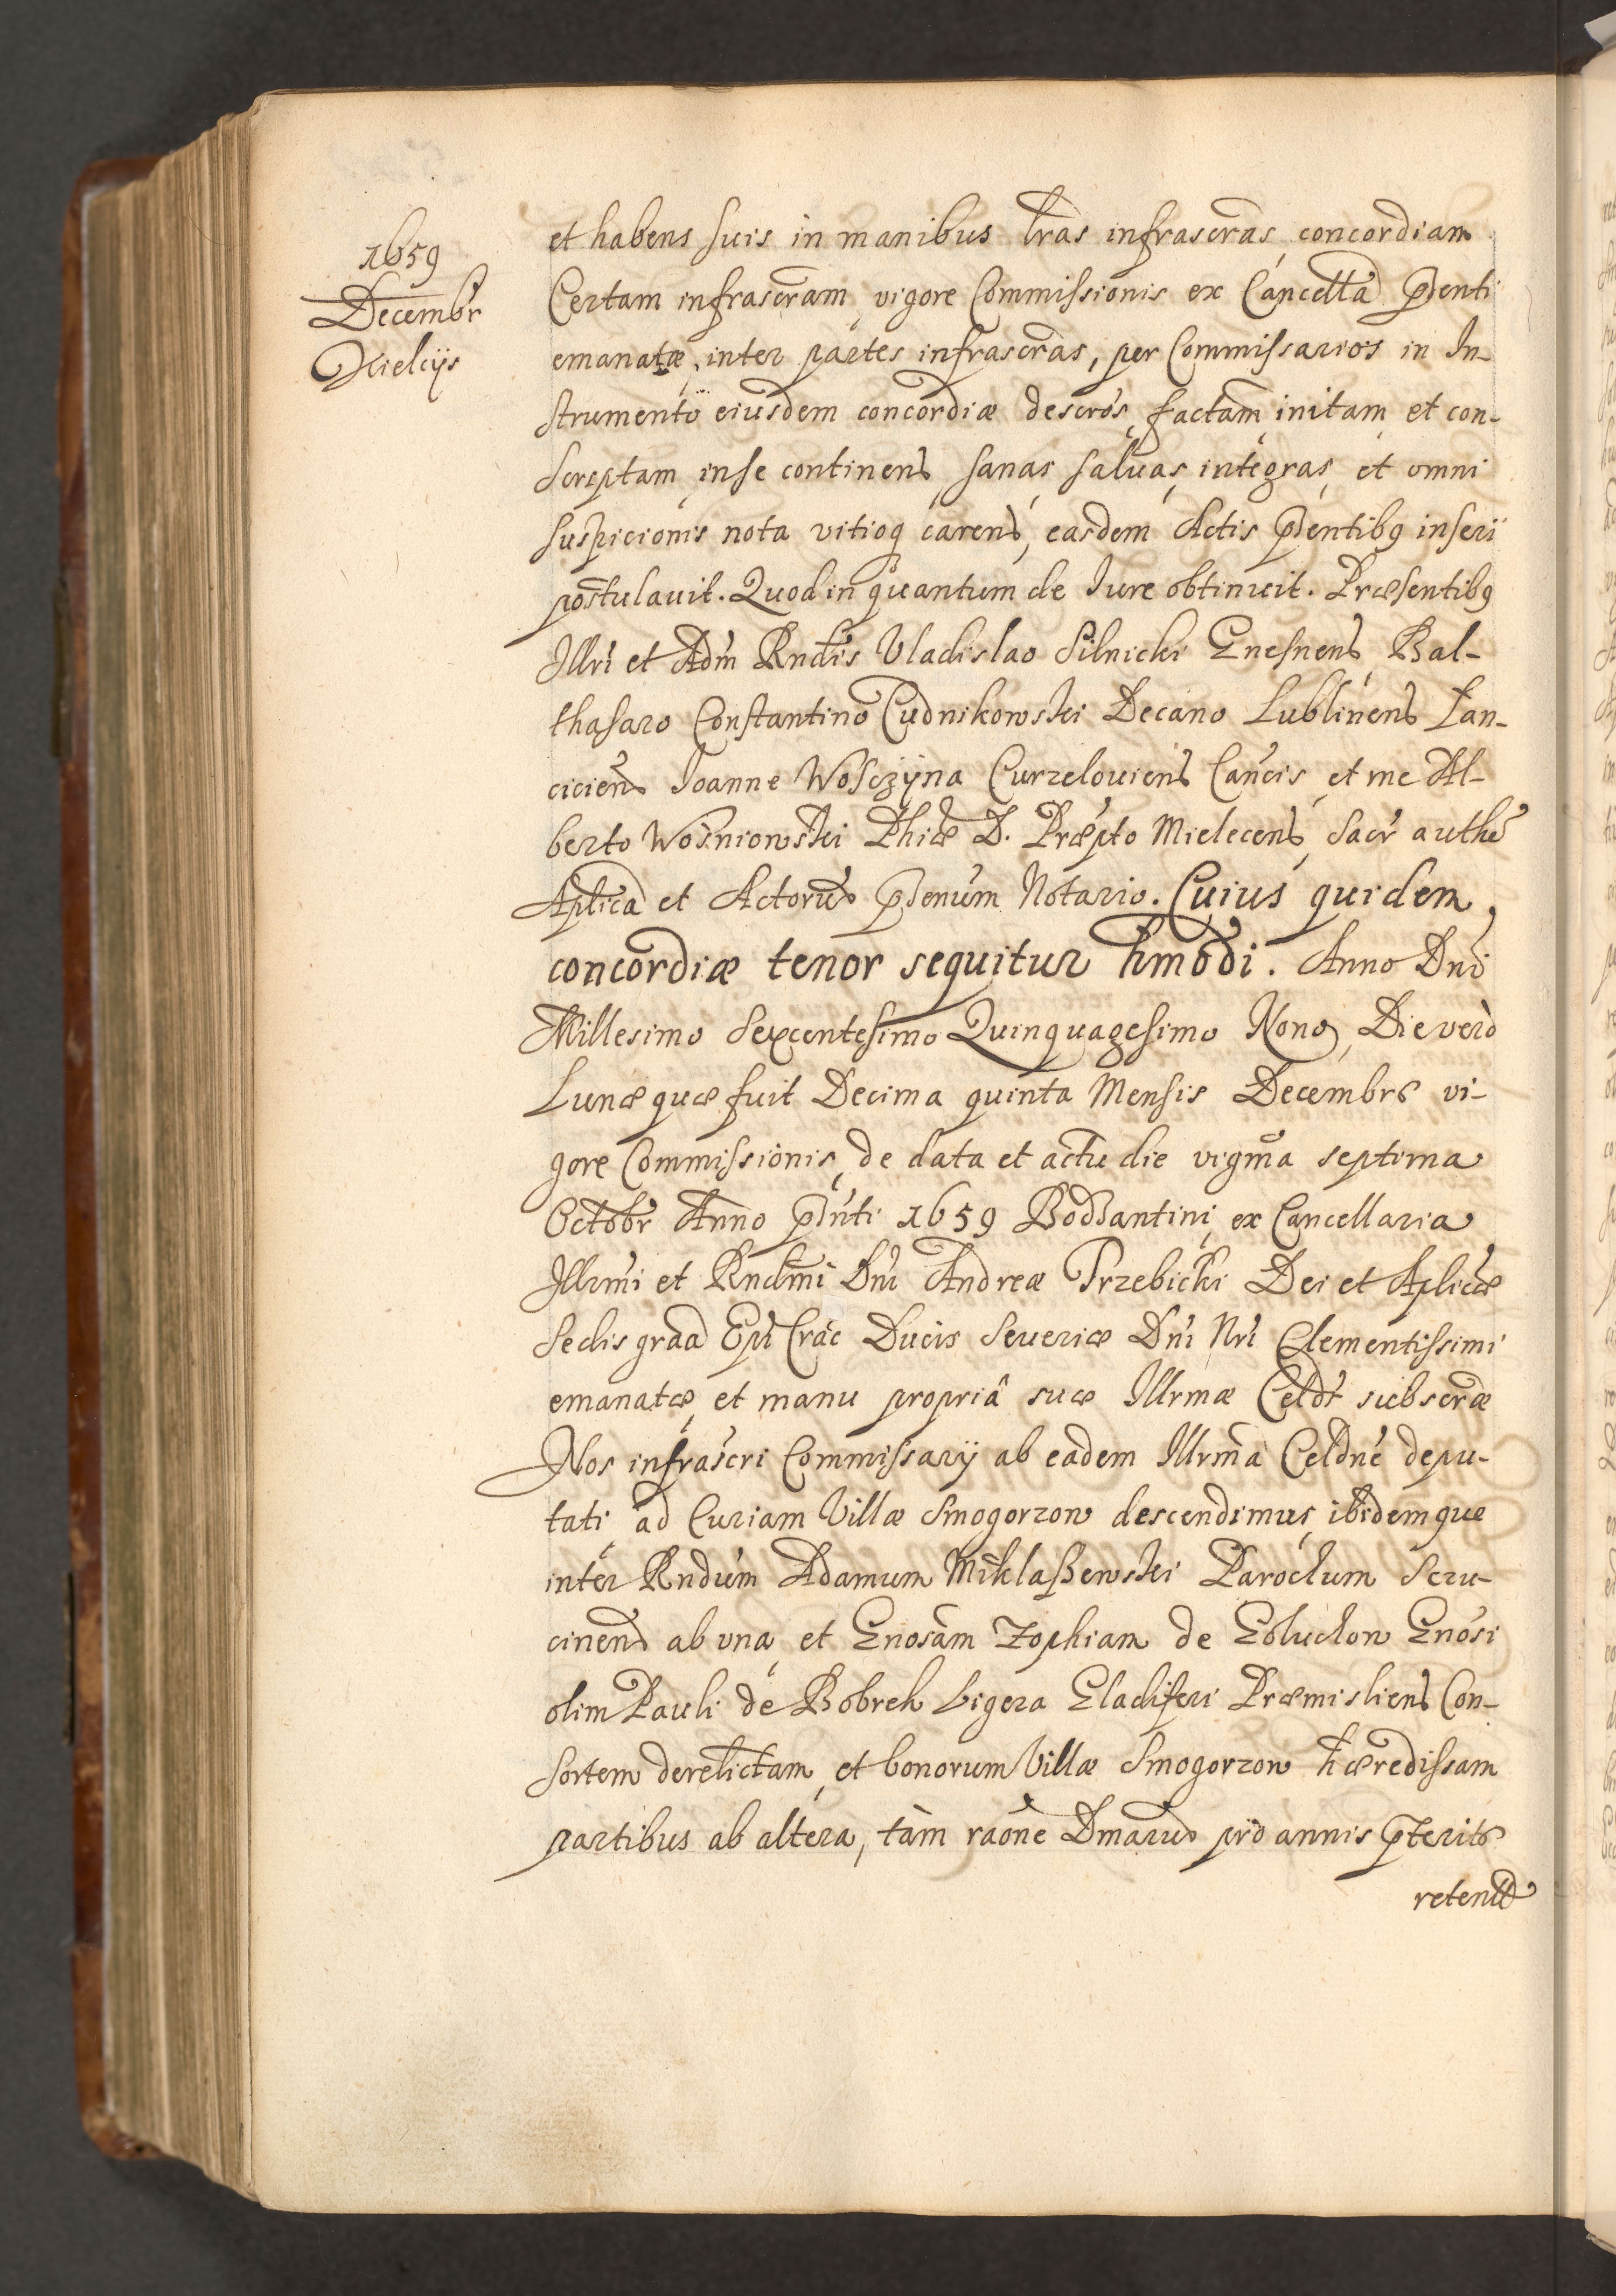 1659
Decembr
Kielcijs
et habens suis in manibus lras infrascras, concordiam
Certam infrascram, vigore Commissionis ex Cancella pnti
emanatæ, inter partes infrascras, per Commissarios in In-
strumento eiusdem concordiæ descros, factam, initam, et con-
scriptam, in se continens, sanas, saluas, integras, et omni
suspicionis nota vitioq carens, easdem Actis pntibq inseri
postulauit. Quod in quantum de Iure obtinuit. Præsentibq
Illri et Adm Rndis Vladislao Silnicki Gnesnens, Bal-
thasaro Constantino Cudnikowski Decano Lublinens Lan-
ciciens Ioanne Wosczyna Curzelouiens Cancis, et me Al-
berto Wosniowski Phiæ D. Præpto Mielecens, Sacr authe
Aplica et Actorum pntium Notario. Cuius quidem
concordiæ tenor sequitur hmodi. Anno Dni
Millesimo Sexcentesimo Quinquagesimo Nono, Die verò
Lunæ quæ fuit Decima quinta Mensis Decembrs vi-
gore Commissionis, de data et actu die vigma septima
Octobr Anno pnti 1659 Bodzantini, ex Cancellaria
Illrmi et Rndmi Dni Andreæ Trzebicki Dei et Aplicæ
Sedis graa Epi Crac Ducis Seueriæ Dni Nri Clementissimi
emanatæ, et manu propriâ suæ Illrmæ Celdt subscræ
Nos infrascri Commissarij ab eadem Illrma Celdne depu-
tati ad Curiam Villæ Smogorzow descendimus, ibidemque
inter Rndum Adamum Miklaszewski Parochum Scru-
cinens ab vna, et Gnosam Zophiam de Goluchow Gnosi
olim Pauli de Bobrek Ligeza Gladiferi Præmisliens Con-
sortem derelictam, et bonorum Villæ Smogorzow hæredissam
partibus ab altera, tàm raone Dmarum pro annis pterits
retent